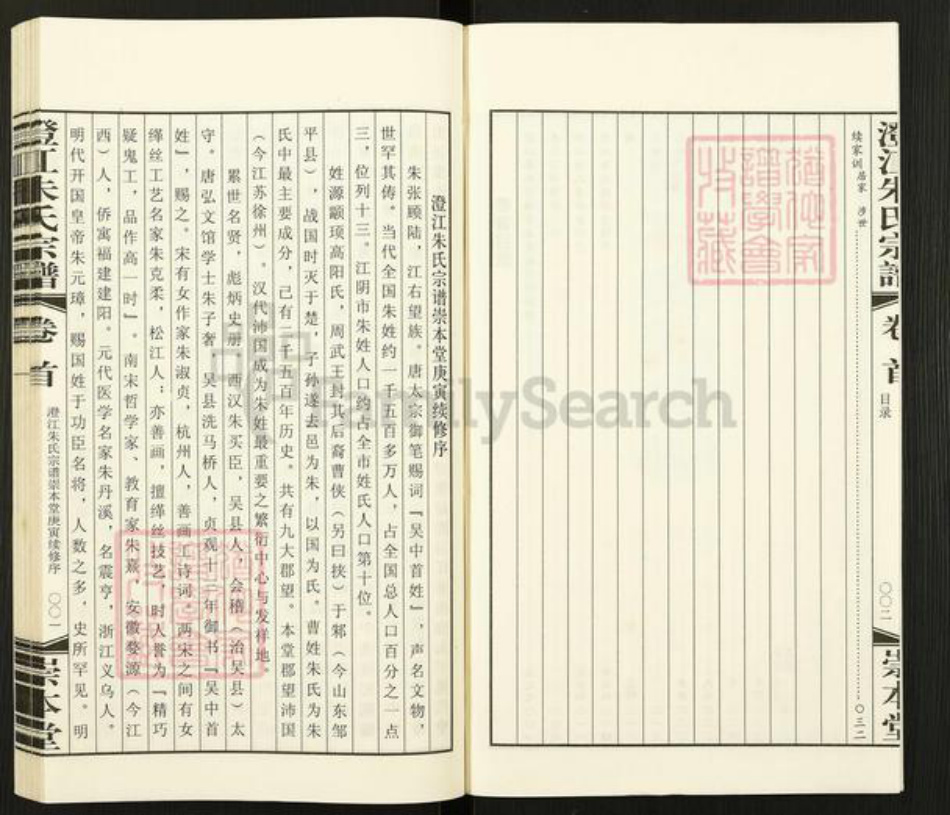 澄江朱氏宗谱
卷首
目录
〇〇二
崇本堂
续家训居家 涉世……〇三二
澄江朱氏宗谱崇本堂庚寅续修序
朱张顾陆，江右望族。唐太宗御笔赐词『吴中首姓』，声名文物，
世罕其俦。当代全国朱姓约一千五百多万人，占全国总人口百分之一点
三，位列十三。江阴市朱姓人口约占全市姓氏人口第十位。
姓源颛顼高阳氏，周武王封其后裔曹侠（另曰挟）于邾（今山东邹
平县），战国时灭于楚，子孙遂去邑为朱，以国为氏。曹姓朱氏为朱
氏中最主要成分，己有二千五百年历史。共有九大郡望。本堂郡望沛国
（今江苏徐州）。汉代沛国成为朱姓最重要之繁衍中心与发样地。
累世名贤，彪炳史册。西汉朱买臣，吴县人，会稽（治吴县）太
守。唐弘文馆学士朱子奢，吴县洗马桥人，贞观十二年御书『吴中首
姓』，赐之。宋有女作家朱淑贞，杭州人，善画工诗词。两宋之间有女
缂丝工艺名家朱克柔，松江人；亦善画，擅缂丝技艺，时人誉为『精巧
疑鬼工，品作高一时』。南宋哲学家、教育家朱熹，安徽婺源（今江
西）人，侨寓福建建阳。元代医学名家朱丹溪，名震亨，浙江义乌人。
明代开国皇帝朱元璋，赐国姓于功臣名将，人数之多，史所罕见。明
澄江朱氏宗谱
卷首
澄江朱氏宗谱崇本堂庚寅续修序
〇〇一
崇本堂
FamilySearch